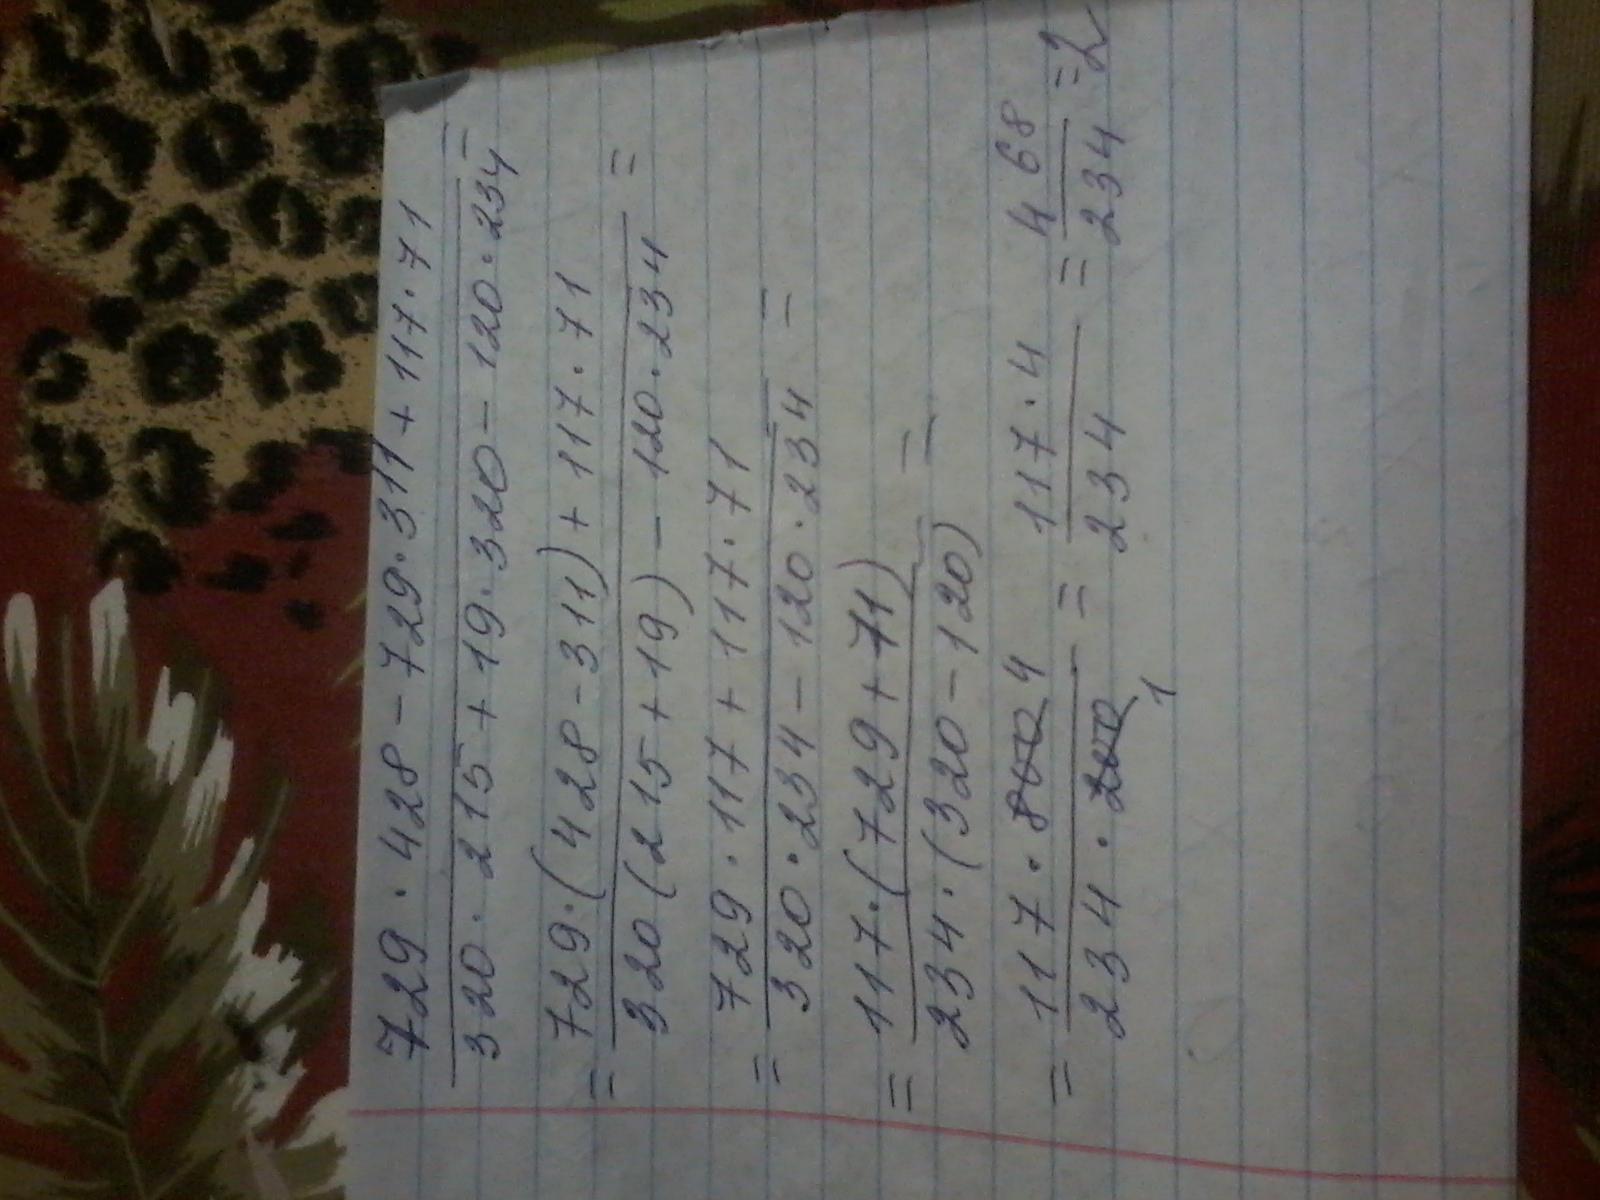 729 · 428 - 729 · 311 + 117 · 71
320 · 215 + 19 · 320 - 120 · 234 =
= 729 · (428 - 311) + 117 · 71
320 (215 + 19) - 120 · 234 =
= 729 · 117 + 117 · 71
320 · 234 - 120 · 234 =
= 117 · (729 + 71)
234 · (320 - 120) =
= 117 · 800 4 117 · 4 468
234 · 200 1 = 234 = 234 = 2